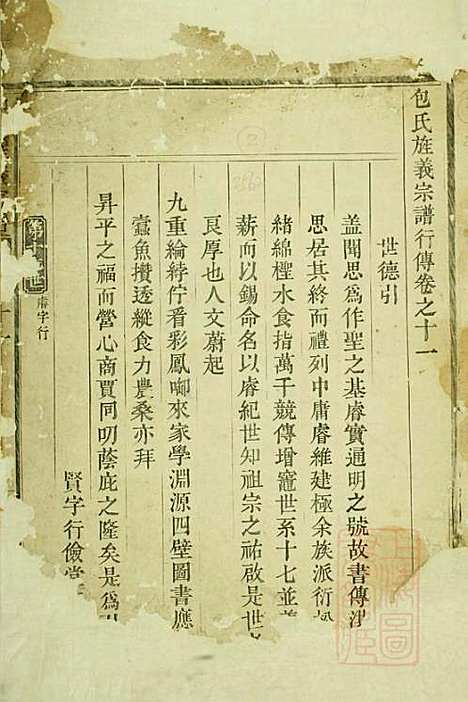 包氏旌義宗譜行傳卷之十一
世德引
蓋聞思爲作聖之基睿實通明之號故書傳洪
思居其終而禮列中庸睿維建極余族派衍
緒綿檉水食指萬千競傳增竈世系十七並
薪而以錫命名以睿紀世知祖宗之祐啟是世
長厚也人文蔚起
九重綸綍佇看彩鳳啣來家學淵源四壁圖書應
蠹魚攢透縱食力農桑亦拜
昇平之福而營心商賈同叨蔭庇之隆矣是爲引
賢字行儉
睿字行